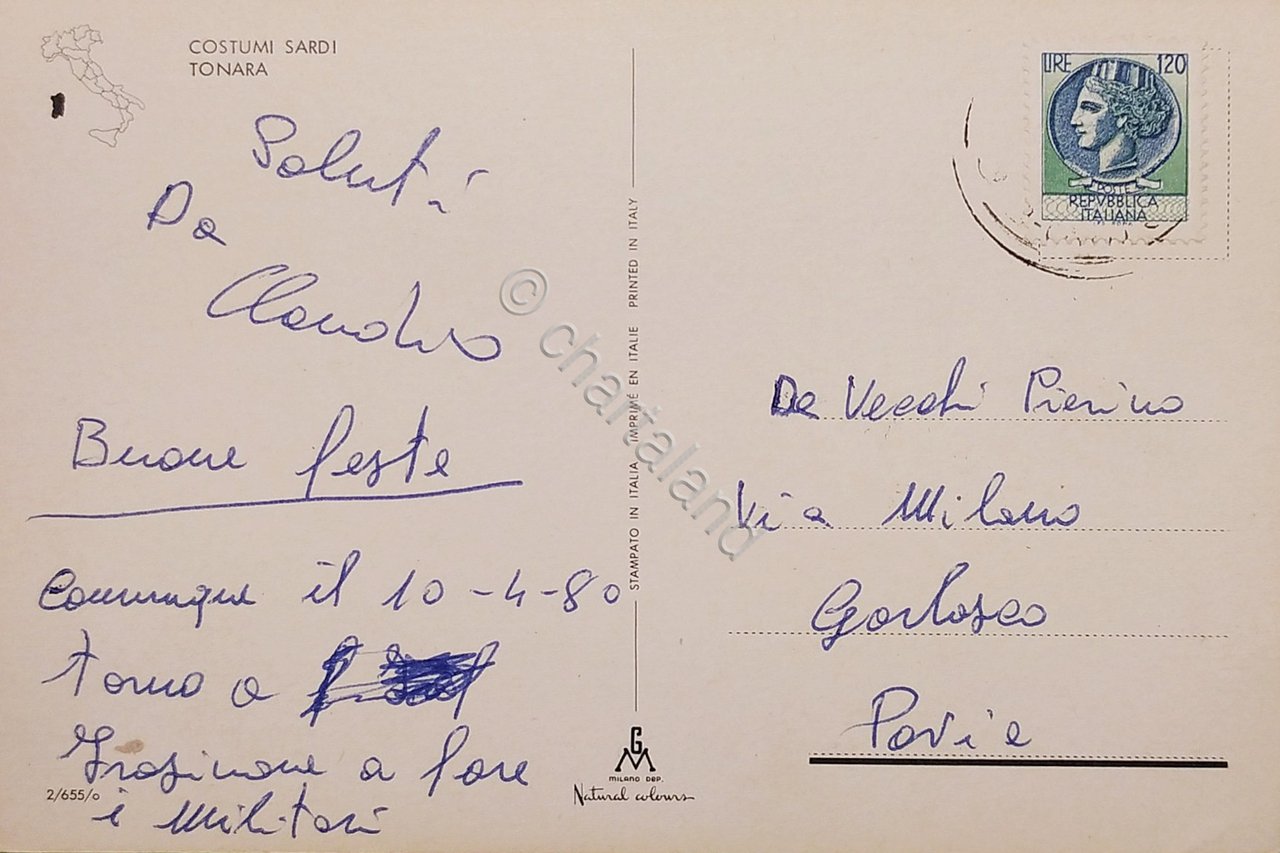 COSTUMI SARDI
TONARA
Saluti
Da
Claudio
Buone feste
Comunque il 10-4-80
torno a
Frosinone a fare
i Militari
2/655/o
STAMPATO IN ITALIA IMPRIMÉ EN ITALIE PRINTED IN ITALY
G
M
MILANO DEP.
Natural colours
© chartaland
LIRE 120
POSTE
REPVBBLICA
ITALIANA
De Vecchi Pierino
Via Milano
Garlasco
Pavia